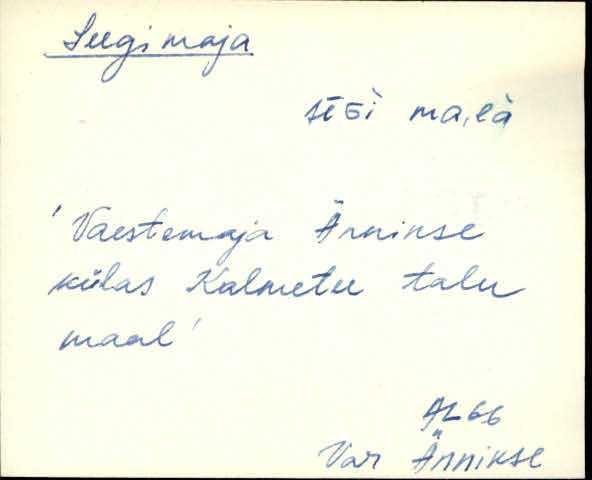 Seegimaja
'Vaestemaja Ännikse
külas Kalmetu talu
maal'
AL 66
Var Ännikse